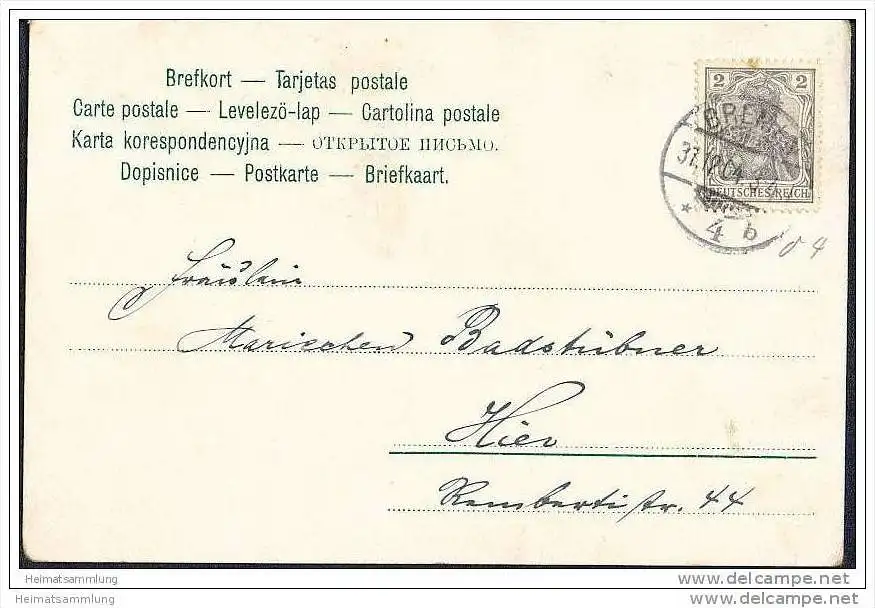 Brefkort — Tarjetas postale
Carte postale — Levelezö-lap — Cartolina postale
Karta korespondencyjna — ОТКРЫТОЕ ПИСЬМО.
Dopisnice — Postkarte — Briefkaart.
2 2
DEUTSCHES REICH
BREM
31.12.04
* 4 b
04
Fräulein
Marieschen Badstübner
Hier
Rembertistr. 44
Heimatsammlung
us.delcampe.net
Heimatsammlung
us.delcampe.net